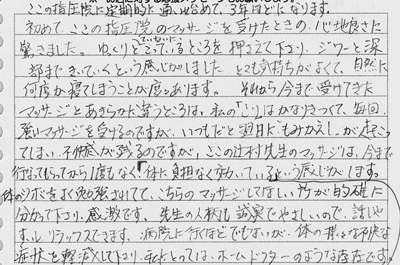 ここの指圧院に定期的に通い始めて、3年ほどになります。
初めて、ここの指圧院のマッサージを受けたときの心地良さに
驚きました。ゆっくりとこっているところを押さえて下さり、ジワーと深
ていねいに
部まできいていくという感じがしました。とても気持ちがよくて、自然に
何度か寝てしまうことが度々あります。それから今まで受けてきた
マッサージとあきらかに違うところは、私の「こり」はかなりきつくて、毎回、
強いマッサージを受けるのですが、いつもだと翌日「もみかえし」が起こっ
てしまい、不快感が残るのですが、ここの辻村先生のマッサージは、今まで
行なってもらってから1度もなく「体に負担なく効いている」という感じがします。
体のツボをよく勉強されてて、こちらのマッサージしてほしい所が的確に
分かって下さり、感激です。先生の人柄も誠実でやさしいので、話しや
すく、リラックスできます。病院に行くほどでもないが、体の様々な不快な
症状を軽減して下さり、私にとっては、ホームドクターのような存在です。